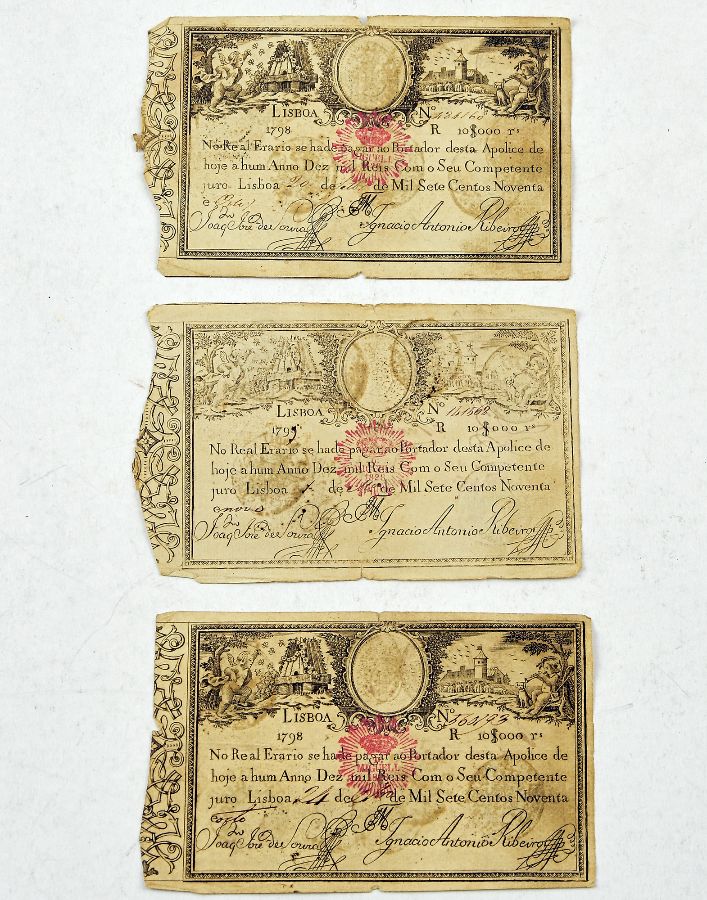 LISBOA Nº
1798 R 10$000 rs
No Real Erario se hade pagar ao Portador desta Apolice de
hoje a hum Anno Dez mil Reis Com o Seu Competente
juro Lisboa 20 de de Mil Sete Centos Noventa
e
Joaq.m José de Souza Ignacio Antonio Ribeiro
LISBOA Nº
1799 R 10$000 rs
No Real Erario se hade pagar ao Portador desta Apolice de
hoje a hum Anno Dez mil Reis Com o Seu Competente
juro Lisboa de de Mil Sete Centos Noventa
e nove
Joaq.m José de Souza Ignacio Antonio Ribeiro
LISBOA Nº
1798 R 10$000 rs
No Real Erario se hade pagar ao Portador desta Apolice de
hoje a hum Anno Dez mil Reis Com o Seu Competente
juro Lisboa 24 de de Mil Sete Centos Noventa
e oyto
Joaq.m José de Souza Ignacio Antonio Ribeiro